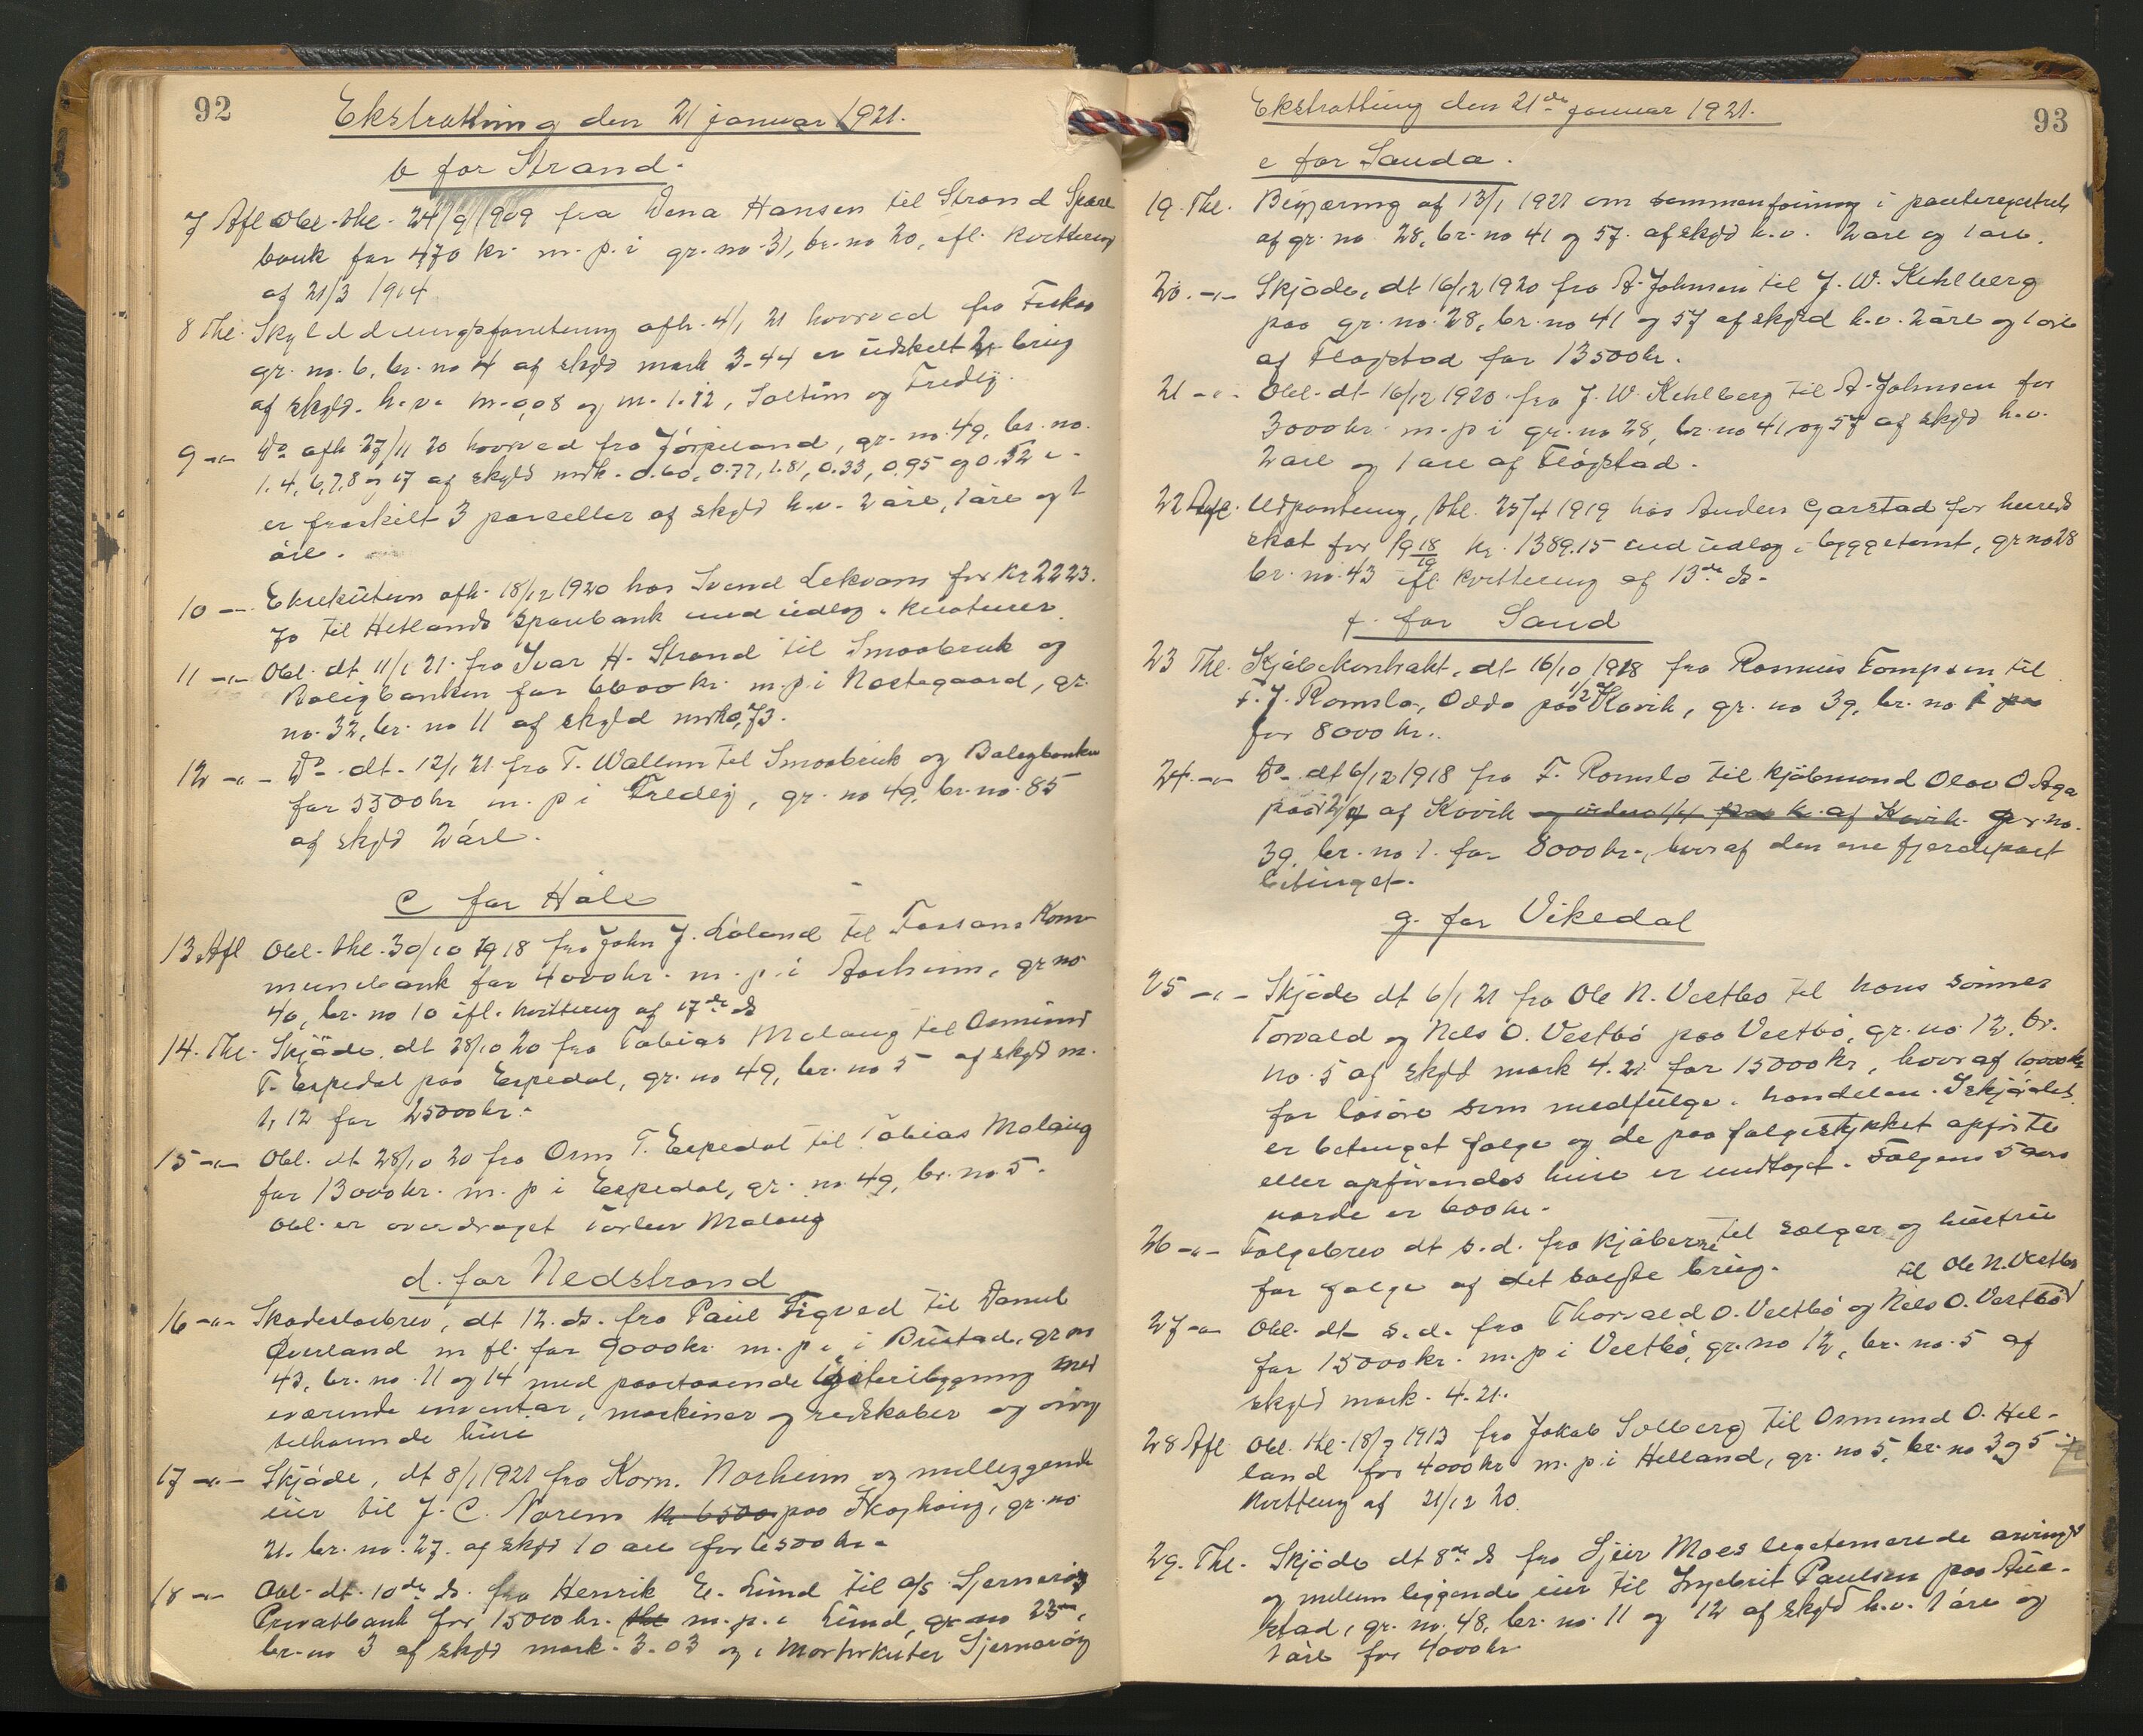 92
Ekstratting den 21 januar 1921.
b for Strand.
7 Afl Obl. thl. 24/9 1909 fra Dena Hansen til Strand Spare
bank for 470 kr. m. p. i gr. no 31, br. no 20, ifl. kvittering
af 21/3 1914
8 Thl. Skylddelingsforretning afh. 4/1 21 hvorved fra Fiskaa
gr. no. 6, br. no 4 af skyld mark 3.44 er udskilt 2 brug
af skyld. h. v. m. 0,08 og m. 1.12, Soltun og Fredly.
9 -"- Do afh. 27/11 20 hvorved fra Jörpeland, gr. no. 49, br. no.
1. 4, 6, 7, 8 og 17 af skyld mrk. 0.60, 0.77, 1.81, 0.33, 0.95 og 0.52
er fraskilt 3 parceller af skyld h. v. 2 öre, 1 öre og 1
öre.
10 -"- Eksekution afh. 18/12 1920 hos Svend Lekvam for Kr 2223.
70 til Hetlands Sparebank med udlæg i
11 -"- Obl. dt 11/1 21. fra Ivar H. Strand til Smaabruk og
Boligbanken for 6600 kr. m. p. i Nostegaard, gr.
no. 32, br. no 11 af skyld mrk 0,73.
12 -"- Do dt. 12/1 21 fra T. Wallum til Smaabruk og Boligbanken
for 5500 kr m. p i Fredly, gr. no 49, br. no. 85
af skyld 2 öre.
c for Höle
13 Afl Obl. thl. 30/10 1918 fra John J. Löland til Forsand Kom-
munebank for 4000 kr. m. p. i Aarheim, gr no
40, br. no 10 ifl. kvittering af 17de ds
14. Thl. Skjöde, dt 28/10 20 fra Tobias Molaug til Osmund
T. Espedal paa Espedal, gr. no 49, br. no 5 af skyld m.
1, 12 for 25000 kr.
15 -"- Obl. dt 28/10 20 fra Osm T. Espedal til Tobias Molaug
for 13000 kr. m. p i Espedal, gr. no 49, br. no 5.
Obl. er overdraget Torleiv Molaug
d. for Nedstrand
16 -"- Skadeslosbrev, dt 12. ds. fra Paul Tigved til Daniel
Överland m fl. for 9000 kr. m. p. i Bustad, gr no
43, br. no. 11 og 14 med paastaaende bygning med
iværende inventar, maskiner og redskaber og övrig
tilhörende huse
17 -"- Skjöde, dt 8/1 1921 fra Korn. Norheim og mellliggende
eier til J. C. Norem kr 6500 paa Skoghaug, gr. no
21. br. no. 27. af skyld 10 öre for 6500 kr.
18 -"- Obl. dt. 10de ds. fra Henrik E. Lund til a/s Sjernaröy
Privatbank for 15000 kr. thl m. p. i Lund, gr no 25,
br. no 3 af skyld mark. 3.03 og i Motorkutter Sjernaröy
93
Ekstratting den 21de januar 1921.
e for Sauda.
19. Thl. Begjæring af 13/1 1921 om sammenføining i panteregistret
af gr. no 28, br. no 41 og 57. af skyld h. v. 2 öre og 1 öre.
20. -"- Skjöde, dt 16/12 1920 fra A. Johnsen til J. W. Kehlberg
paa gr. no. 28, br. no 41 og 57 af skyld h. v. 2 öre og 1 öre
af Flögstad for 13500 kr.
21 -"- Obl. dt 16/12 1920 fra J. W. Kehlberg til A. Johnsen for
3000 kr. m. p i gr. no 28, br. no 41, og 57 af skyld h. v.
2 öre og 1 öre af Flögstad.
22 Afl. Udpantning, thl. 25/4 1919 hos Anders Garstad for herreds
skat for 1918/19 kr. 1389.15 med udlæg i byggetomt, gr no 28
br. no. 43 ifl kvittering af 13de ds.
f. for Sand
23 Thl. Kjöbekontrakt, dt 16/10 1918 fra Rasmus Tompsen til
F. J. Romslo, Odda paa 1/2 af Kovik, gr. no 39, br. no 1 paa
for 8000 kr..
24. -"- Do dt 6/12 1918 fra F. Romslo til kjöbmand Olav O. Aga
paa 2/4 af Kovik og gr. no.
39, br. no 1. for 8000 kr., hvoraf den ene fjerdepart
betinget.
g. for Vikedal
25 -"- Skjöde dt 6/1 21 fra Ole N. Vestbö til hans sönner
Torvald og Nels O. Vestbö paa Vestbö, gr. no 12, br.
no. 5 af skyld mark 4.21 for 15000 kr, hvoraf 10000 kr
for lösöre som medfulge i handelen. I skjödet
er betinget folge og de paa folgestykket opförte
eller opförendes huse er undtaget. Folgens 5 aars
værde er 600 kr.
26 -"- Folgebrev dt s. d. fra kjöberne til sælger og hustru
for folge af det solgte brug.
27 -"- Obl. dt s. d. fra Thorvald O. Vestbö og Nels O. Vestbö til Ole N. Vestbö
for 15000 kr. m. p i Vestbö, gr. no 12, br. no. 5 af
skyld mark. 4.21.
28 Afl Obl. thl. 18/7 1913 fra Jakob Solberg til Osmund O. Hel-
land for 4000 kr m. p. i Helland, gr. no 5, br. no 3 og 5 ifl
kvittering af 21/12 20.
29. Thl. Skjöde dt 8de ds fra Sjur Moes legitimerede arvinger
og mellem liggende eier til Ingebrit Paulsen paa Aue-
stad, gr. no. 48, br. no. 11 og 12 af skyld h. v. 1 öre og
1 öre for 4000 kr